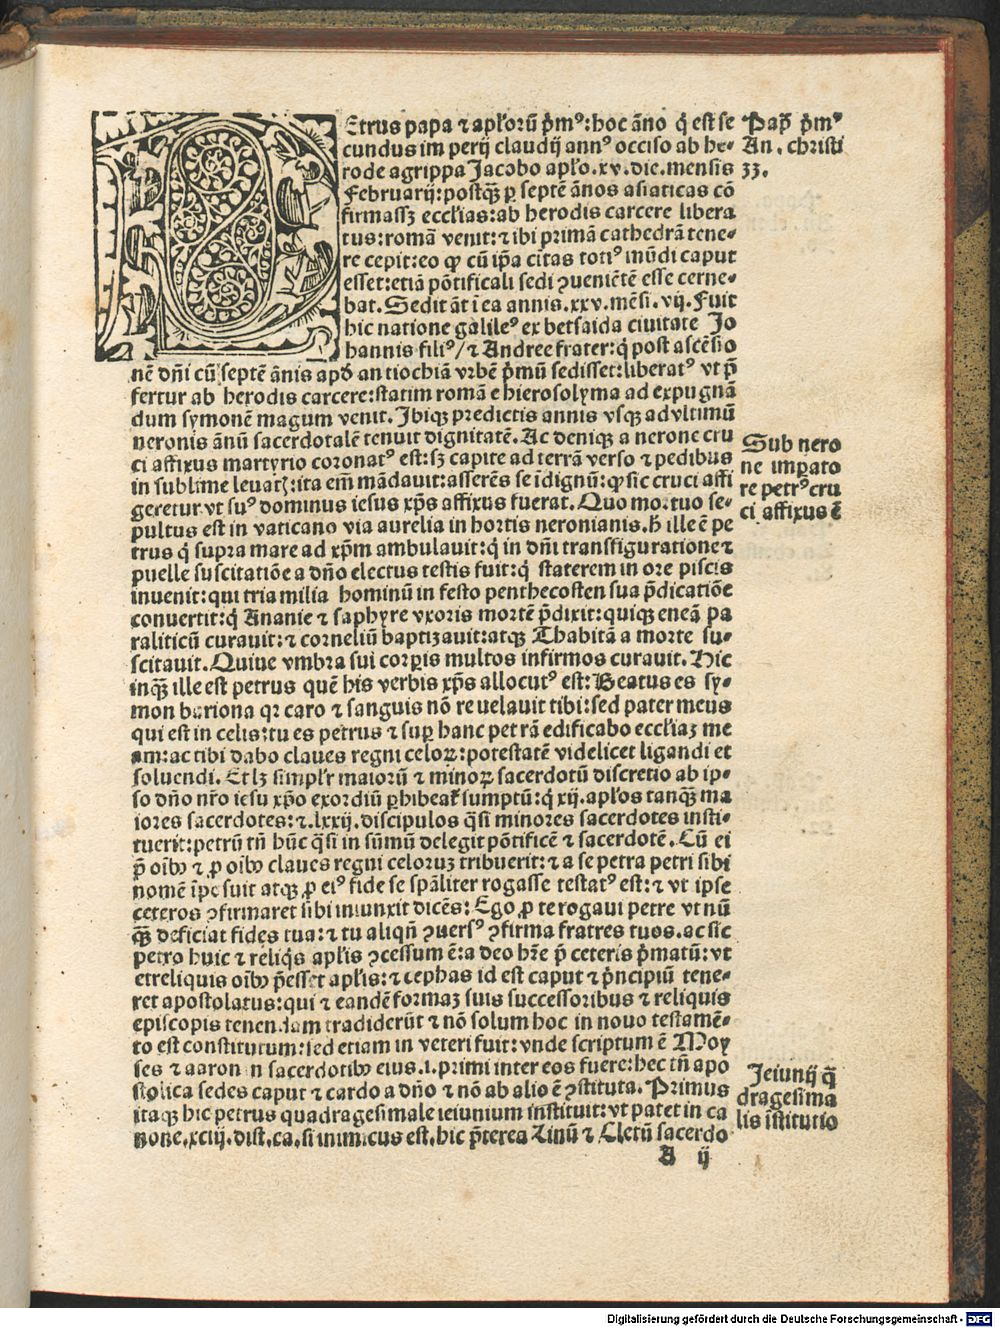 Etrus papa ⁊ apl'oꝝ pͥmꝰ: hoc ãno q̇ est se
cundus imperij claudij annꝰ occiso ab he-
rode agrippa Jacobo apl'o.xv.die.mensis
Februarij:postq̃ꝫ ꝑ septē ãnos asiaticas cõ
firmassꝫ eccl'ias:ab herodis carcere libera
tus:romã venit:⁊ ibi primã cathedrã tene-
re cepit:eo ꝙ cũ ip̃a ciitas totiꝰ mũdi caput
esset:etiã põtificali sedi ꝯueniētē esse cerne-
bat. Sedit ãt ĩ ea annis.xxv.mẽsi.vij. Fuit
hic natione galileꝰ ex betsaida ciuitate Jo
hannis filiꝰ/⁊ Andree frater:q̇ post ascẽsio
nē dñi cũ septē ãnis apđ antiochiã vrbē pͥmũ sedisset:liberatꝰ vt p̃
fertur ab herodis carcere:statim romã e hierosolyma ad expugnã
dum symonē magum venit. Ibiqꝫ predictis annis vsqꝫ ad vltimũ
neronis ãnũ sacerdotalē tenuit dignitatē. Ac deniqꝫ a nerone cru
ci affixus martyrio coronatꝰ est:sꝫ capite ad terrã verso ⁊ pedibus
in sublime leuatꝭ:ita em̃ mãdauit:asserẽs se ĩdignũ:ꝙ sic cruci affi
geretur vt suꝰ dominus iesus xp̃s affixus fuerat. Quo mortuo se-
pultus est in vaticano via aurelia in hortis neronianis. ħ ille ē pe
trus q̇ supra mare ad xp̃m ambulauit:q̇ in dñi transfiguratione ⁊
puelle suscitatiõe a dño electus testis fuit:q̇ staterem in ore piscis
inuenit:qui tria milia hominũ in festo penthecosten sua p̃dicatiõe
conuertit:q̇ Ananie ⁊ saphyre vxoris mortē p̃dixit:quiqꝫ eneã pa
raliticũ curauit:⁊ corneliũ baptizauit:atqꝫ Thabitã a morte su-
scitauit. Quiue vmbra sui corpis multos infirmos curauit. Hic
inq̃ꝫ ille est petrus quē his verbis xp̃s allocutꝰ est: Beatus es sy-
mon bariona qꝛ caro ⁊ sanguis nõ reuelauit tibi:sed pater meus
qui est in celis:tu es petrus ⁊ suꝑ hanc petrã edificabo eccl'iaꝫ me
am:ac tibi dabo claues regni celoꝝ:potestatē videlicet ligandi et
soluendi. Et lꝫ simpl'r maiorũ ⁊ minoꝝ sacerdotũ discretio ab ip-
so dño nr̃o iesu xp̃o exordiũ ꝑhibeat᷑ sumptũ:q̇ xij.apl'os tanq̃ꝫ ma
iores sacerdotes:⁊.lxxij.discipulos q̃si minores sacerdotes insti-
tuerit:petrũ tñ hũc q̃si in sũmũ delegit põtificē ⁊ sacerdotē. Cũ ei
p̃ oĩbꝰ ⁊ ꝓ oĩbꝰ claues regni celoruꝫ tribuerit:⁊ a se petra petri sibi
nomē ĩposuit atqꝫ ꝓ eiꝰ fide se spãliter rogasse testatꝰ est:⁊ vt ipse
ceteros ꝯfirmaret sibi iniunxit dicẽs: Ego ꝓ te rogaui petre vt nũ
q̃ꝫ deficiat fides tua:⁊ tu aliqñ ꝯuersꝰ ꝯfirma fratres tuos.ac sic
petro huic ⁊ reliq̇s apl'is ꝯcessum ē:a deo hr̃e p̃ ceteris pͥmatũ:vt
et reliquis oĩbꝰ p̃esset apl'is:⁊ cephas id est caput ⁊ pͥncipiũ tene-
ret apostolatus:qui ⁊ eandē formaꝫ suis successoribus ⁊ reliquis
episcopis tenendam tradiderũt ⁊ nõ solum hoc in nouo testamē-
to est constitutum:sed etiam in veteri fuit:vnde scriptum ē Moy
ses ⁊ aaron in sacerdotibꝰ eius.i.primi inter eos fuere:hec tñ apo
stolica sedes caput ⁊ cardo a dño ⁊ nõ ab alio ē ꝯstituta. Primus
itaqꝫ hic petrus quadragesimale ieiunium instituit:vt patet in ca
none.xciij.dist.ca.si inimicus est.hic p̃terea Linũ ⁊ Cletũ sacerdo
A ij
Pap̃ pͥmꝰ
An. christi
33.
Sub nero
ne imperato
re petrꝰ cru
ci affixus ē
Jeiunij q̃
dragesima
lis ĩstitutio
Digitalisierung gefördert durch die Deutsche Forschungsgemeinschaft - DFG